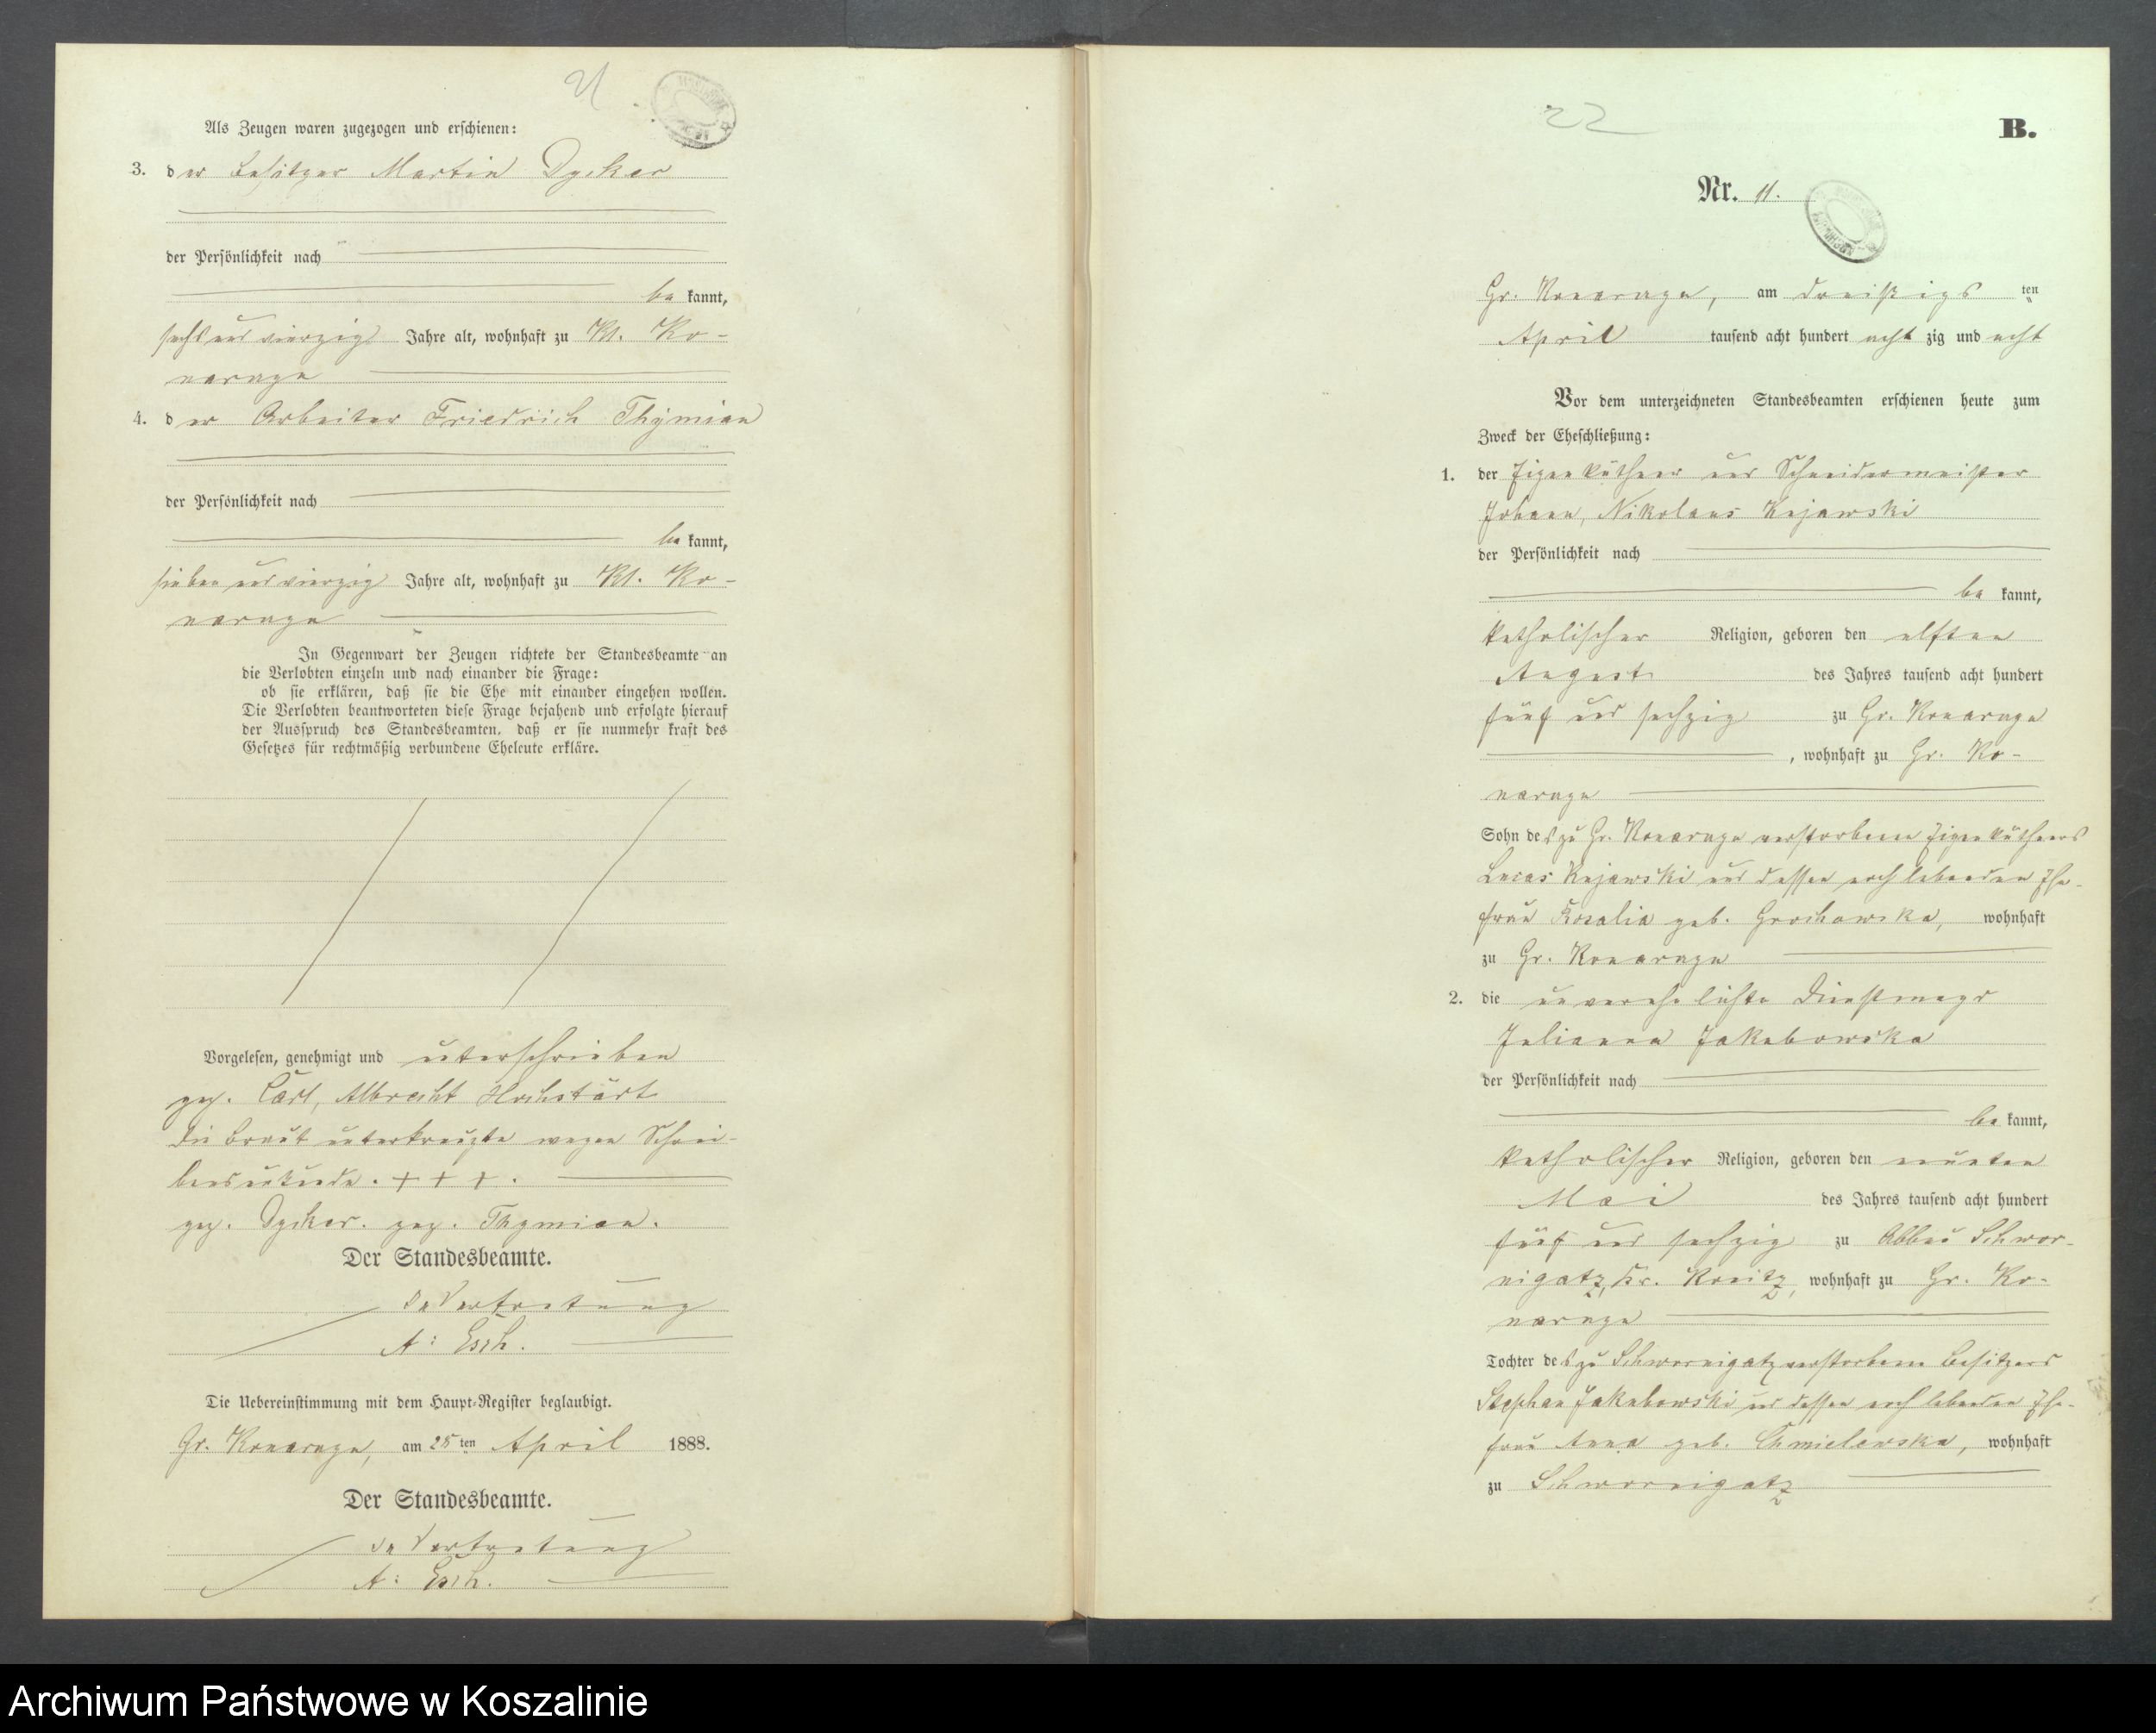 21
Als Zeugen waren zugezogen und erschienen:
3. der Besitzer Martin Dyiker
der Persönlichkeit nach
be kannt,
sechs und vierzig Jahre alt, wohnhaft zu Kl. Ko-
narzyn
4. der Arbeiter Friedrich Thymian
der Persönlichkeit nach
be kannt,
sieben und vierzig Jahre alt, wohnhaft zu Kl. Ko-
narzyn
In Gegenwart der Zeugen richtete der Standesbeamte an
die Verlobten einzeln und nach einander die Frage:
ob sie erklären, daß sie die Ehe mit einander eingehen wollen.
Die Verlobten beantworteten diese Frage bejahend und erfolgte hierauf
der Ausspruch des Standesbeamten, daß er sie nunmehr kraft des
Gesetzes für rechtmäßig verbundene Eheleute erkläre.
Vorgelesen, genehmigt und unterschrieben
gez. Carl, Albrecht Hochstärt
Die Braut unterkreuzte wegen Schrei-
bensunkunde. + + +.
gez. Dyiker. gez. Thymian.
Der Standesbeamte.
In Vertretung
A: Esch.
Die Uebereinstimmung mit dem Haupt-Register beglaubigt.
Gr. Konarzyn, am 28 ten April 1888.
Der Standesbeamte.
In Vertretung
A: Esch.
22
B.
Nr. 11.
Gr. Konarzyn, am dreißigs ten
April tausend acht hundert acht zig und acht
Vor dem unterzeichneten Standesbeamten erschienen heute zum
Zweck der Eheschließung:
1. der Eigenkäthner und Schneidermeister
Johann, Nikolaus Kujawski
der Persönlichkeit nach
be kannt,
katholischer Religion, geboren den elften
August des Jahres tausend acht hundert
fünf und sechzig zu Gr. Konarzyn
, wohnhaft zu Gr. Ko-
narzyn
Sohn des zu Gr. Konarzyn verstorbenen Eigenkäthners
Lucas Kujawski und dessen noch lebenden Ehe-
frau Rosalia geb. Grochowska, wohnhaft
zu Gr. Konarzyn
2. die unverehelichte Dienstmagd
Julianna Jakubowska
der Persönlichkeit nach
be kannt,
katholischer Religion, geboren den neunten
Mai des Jahres tausend acht hundert
fünf und sechzig zu Abbau Schwor-
nigatz, Kr. Konitz, wohnhaft zu Gr. Ko-
narzyn
Tochter des zu Schwornigatz verstorbenen Besitzers
Stephan Jakubowski und dessen noch lebenden Ehe-
frau Anna geb. Chmielewska, wohnhaft
zu Schwornigatz
Archiwum Państwowe w Koszalinie